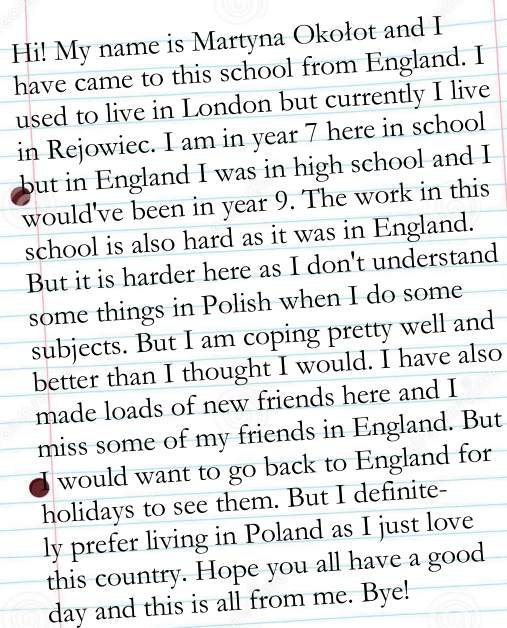 Hi! My name is Martyna Okołot and I
have came to this school from England. I
used to live in London but currently I live
in Rejowiec. I am in year 7 here in school
but in England I was in high school and I
would've been in year 9. The work in this
school is also hard as it was in England.
But it is harder here as I don't understand
some things in Polish when I do some
subjects. But I am coping pretty well and
better than I thought I would. I have also
made loads of new friends here and I
miss some of my friends in England. But
I would want to go back to England for
holidays to see them. But I definite-
ly prefer living in Poland as I just love
this country. Hope you all have a good
day and this is all from me. Bye!